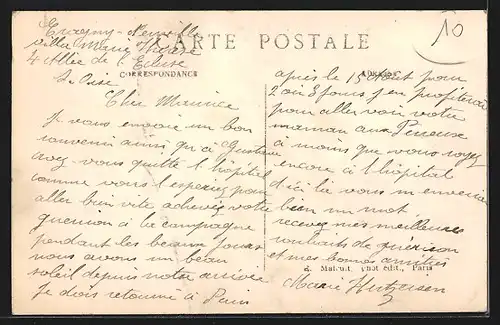 Eragny-Neuville
villa Marie Thérèse
4 Allée de l'Ecluse
S. Oise
CARTE POSTALE
CORRESPONDANCE
ADRESSE
10
Cher Maurice
Je vous envoie un bon
souvenir ainsi qu'à Gustave
avez-vous quitté l'hôpital
comme vous l'espériez pour
aller bien vite achever votre
guérison à la campagne
pendant les beaux jours
nous avons un beau
soleil depuis notre arrivée
Je dois retourné à Paris
après le 15 Août pour
2 ou 3 jours j'en profiterai
pour aller voir votre
maman aux
à moins que vous soyez
encore à l'hôpital
d'ici là vous m'enverriez
bien un mot
recevez mes meilleures
souhaits de guérison
et mes bonnes amitiés
Marie
phot édit., Paris